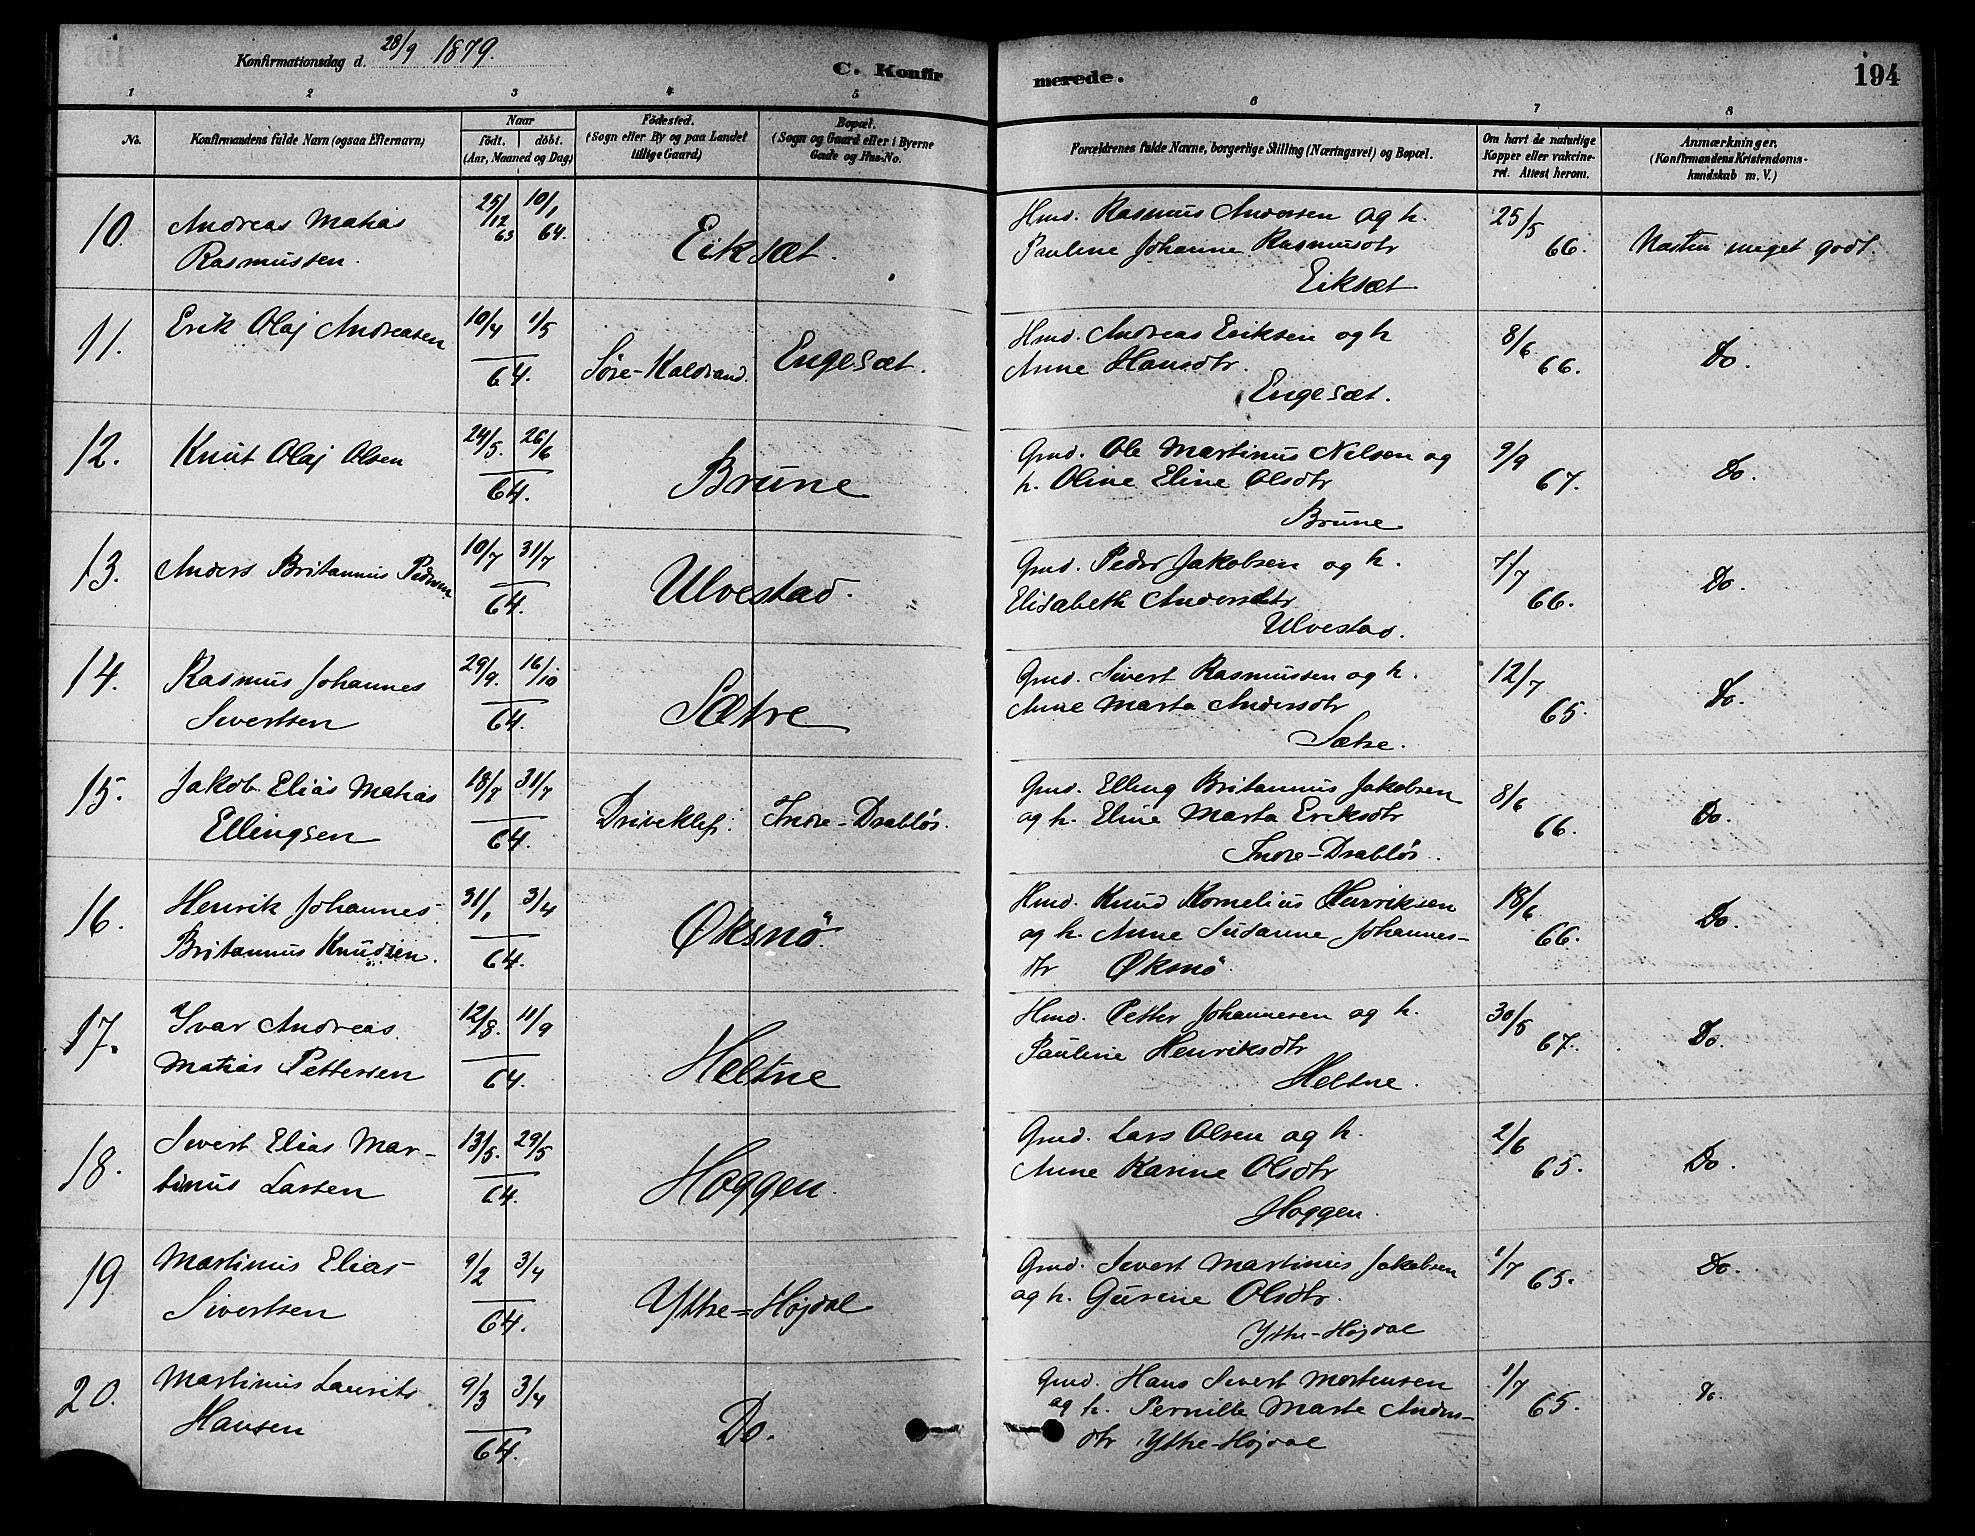 Konfirmationsdag d. 28/9 1879.
C. Konfirmerede.
194
1 2 3 4 5 6 7 8
No.
Konfirmandens fulde Navn (ogsaa Efternavn)
Naar
födt. döbt.
(Aar, Maaned og Dag)
Födested.
(Sogn eller By og paa Landet
tillige Gaard)
Bopæl.
(Sogn og Gaard eller i Byerne
Gade og Hus-No.
Forældrenes fulde Navne, borgerlige Stilling (Næringsvei) og Bopæl.
Om havt de naturlige
Kopper eller vakcine-
ret. Attest herom.
Anmærkninger.
(Konfirmandens Kristendoms-
kundskab m. V.)
10. Andreas Matias
Rasmussen.
25/12 63 10/1 64.
Eiksæt.
Hmd. Rasmus Andersen og h.
Pauline Johanne Rasmusdtr
Eiksæt
25/5 66.
Næsten meget godt.
11. Erik Olaj Andreasen
10/4 1/5
64.
Søre-Kaldvand. Engesæt.
Hmd. Andreas Eriksen og h
Anne Hansdtr.
Engesæt.
8/6 66.
Do.
12. Knut Olaj Olsen
24/5. 26/6
64.
Brune
Gmd. Ole Martinus Nelsen og
h. Oline Eline Olsdtr
Brune
9/9 67.
Do.
13. Anders Britannus Pedersen
10/7 31/7
64.
Ulvestad.
Gmd. Peder Jakobsen og h.
Elisabeth Andersdtr
Ulvestad.
7/7 66.
Do.
14. Rasmus Johannes
Sivertsen
29/9. 16/10
64.
Sætre
Gmd. Sivert Rasmussen og h.
Anne Marta Andersdtr
Sætre.
12/7 65.
Do.
15. Jakob Elias Matias
Ellingsen
18/7 31/7
64.
Driveklep. Indre-Drabløs.
Gmd. Elling Britannus Jakobsen
og h. Eline Marta Eriksdtr
Indre-Drabløs.
8/6 66.
Do.
16. Henrik Johannes
Britannus Knudsen.
31/1 3/4
64.
Øksnø.
Hmd. Knud Kornelius Henriksen
og h. Anne Susanne Johannes-
dtr Øksnø.
18/6 66.
Do.
17. Ivar Andreas
Matias Pettersen
12/8. 11/9
64.
Heltne
Hmd. Petter Johannesen og h.
Pauline Henriksdtr
Heltne.
30/5 67.
Do.
18. Sivert Elias Mar-
tinus Larsen
13/5. 29/5
64.
Hoggen.
Gmd. Lars Olsen og h.
Anne Karine Olsdtr
Hoggen.
2/6 65.
Do.
19 Martinus Elias
Sivertsen
9/2 3/4
64.
Ytre=Højdal
Gmd. Sivert Martinus Jakobsen
og h. Gurine Olsdtr.
Ytre-Højdal
1/7 65.
Do.
20. Martinus Laurits
Hansen
9/3 3/4
64.
Do.
Gmd. Hans Sivert Mortensen
og h. Pernille Marte Anders-
dtr Ytre-Højdal
1/7 65.
Do.